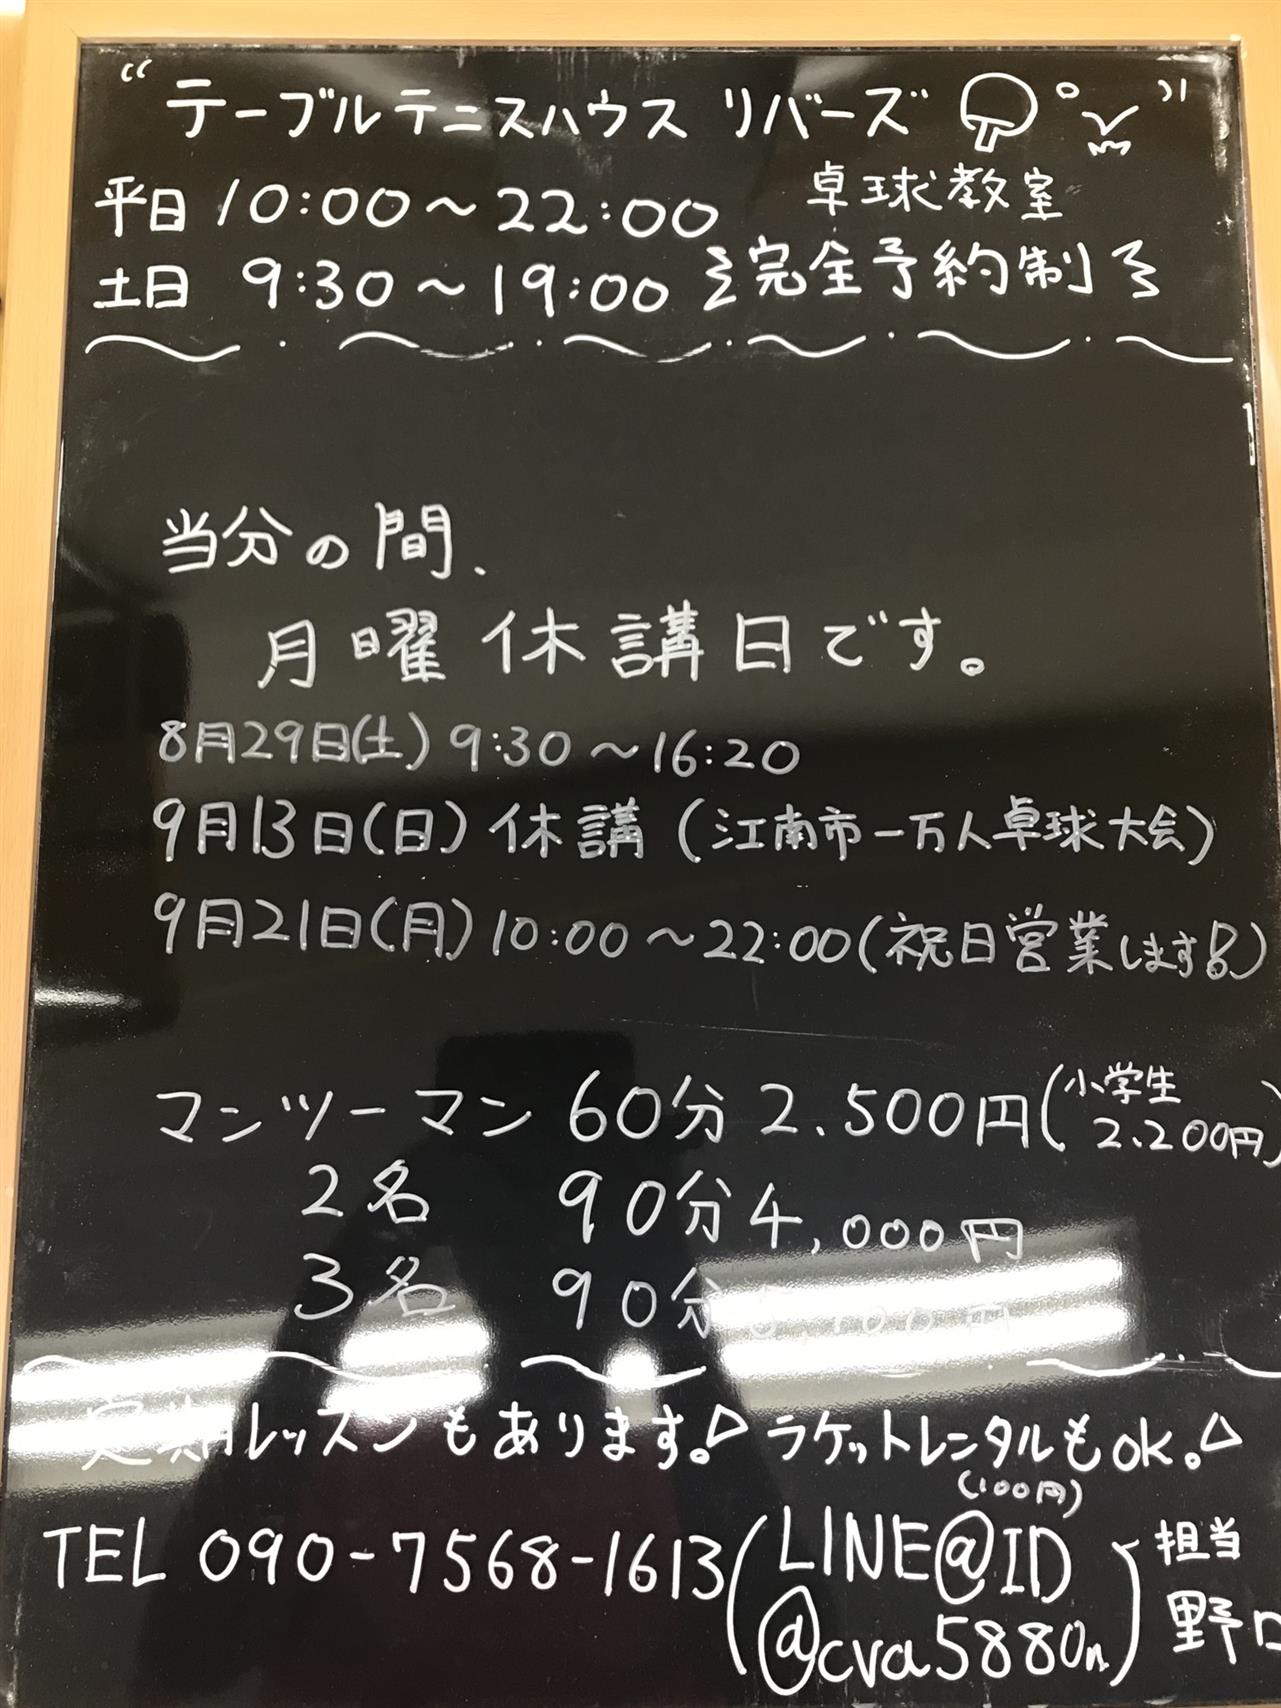 “テーブルテニスハウス リバーズ”
平日 10:00～22:00 卓球教室
土日 9:30～19:00 完全予約制
当分の間、
月曜休講日です。
8月29日(土) 9:30～16:20
9月13日(日) 休講 (江南市一万人卓球大会)
9月21日(月) 10:00～22:00 (祝日営業します!)
マンツーマン 60分 2.500円 (小学生 2.200円)
2名 90分 4,000円
3名 90分
定期レッスンもあります。ラケットレンタルもOK。
(100円)
TEL 090-7568-1613 (LINE@ID @cva5880n) 担当 野口